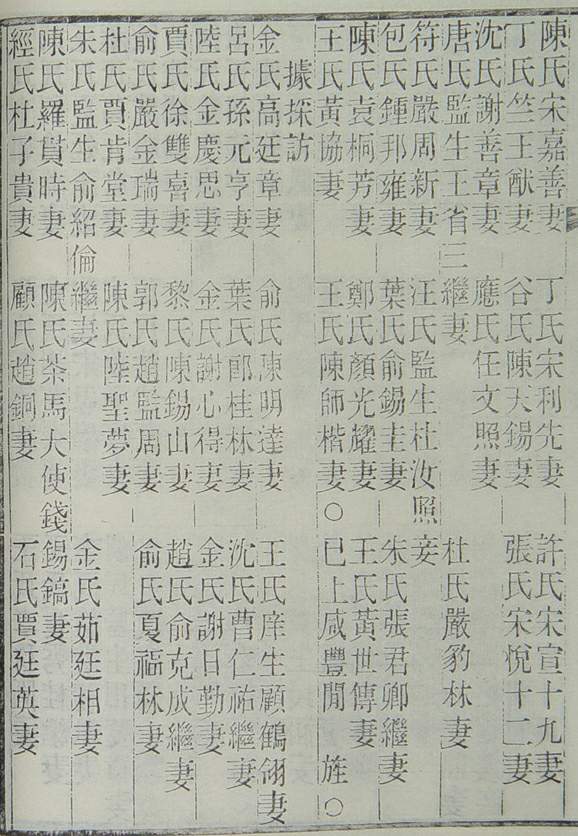 陳氏宋嘉善妻 丁氏宋利先妻 許氏宋宣十九妻
丁氏竺王猷妻 谷氏陳天錫妻 張氏宋悅十二妻
沈氏謝善章妻 應氏任文照妻
唐氏監生王省三繼妻 杜氏嚴豹林妻
符氏嚴周新妻 汪氏監生杜汝照妾
包氏鍾邦雍妻 葉氏俞錫圭妻 朱氏張君卿繼妻
陳氏袁桐芳妻 鄭氏顏光耀妻 王氏黃世傳妻
王氏黃協妻 王氏陳師楷妻○ 已上咸豐閒 旌○
據採訪
金氏高廷章妻 俞氏陳明達妻 王氏庠生顧鶴翎妻
呂氏孫元亨妻 葉氏郎桂林妻 沈氏曹仁祐繼妻
陸氏金慶思妻 金氏謝心得妻 金氏謝日勤妻
賈氏徐雙喜妻 黎氏陳錫山妻 趙氏俞克成繼妻
俞氏嚴金瑞妻 郭氏趙監周妻 俞氏夏福林妻
杜氏賈肯堂妻 陳氏陸聖夢妻
朱氏監生俞紹倫繼妻 金氏茹廷相妻
陳氏羅貫時妻 陳氏茶馬大使錢錫鎬妻
經氏杜子貴妻 顧氏趙銅妻 石氏賈廷英妻